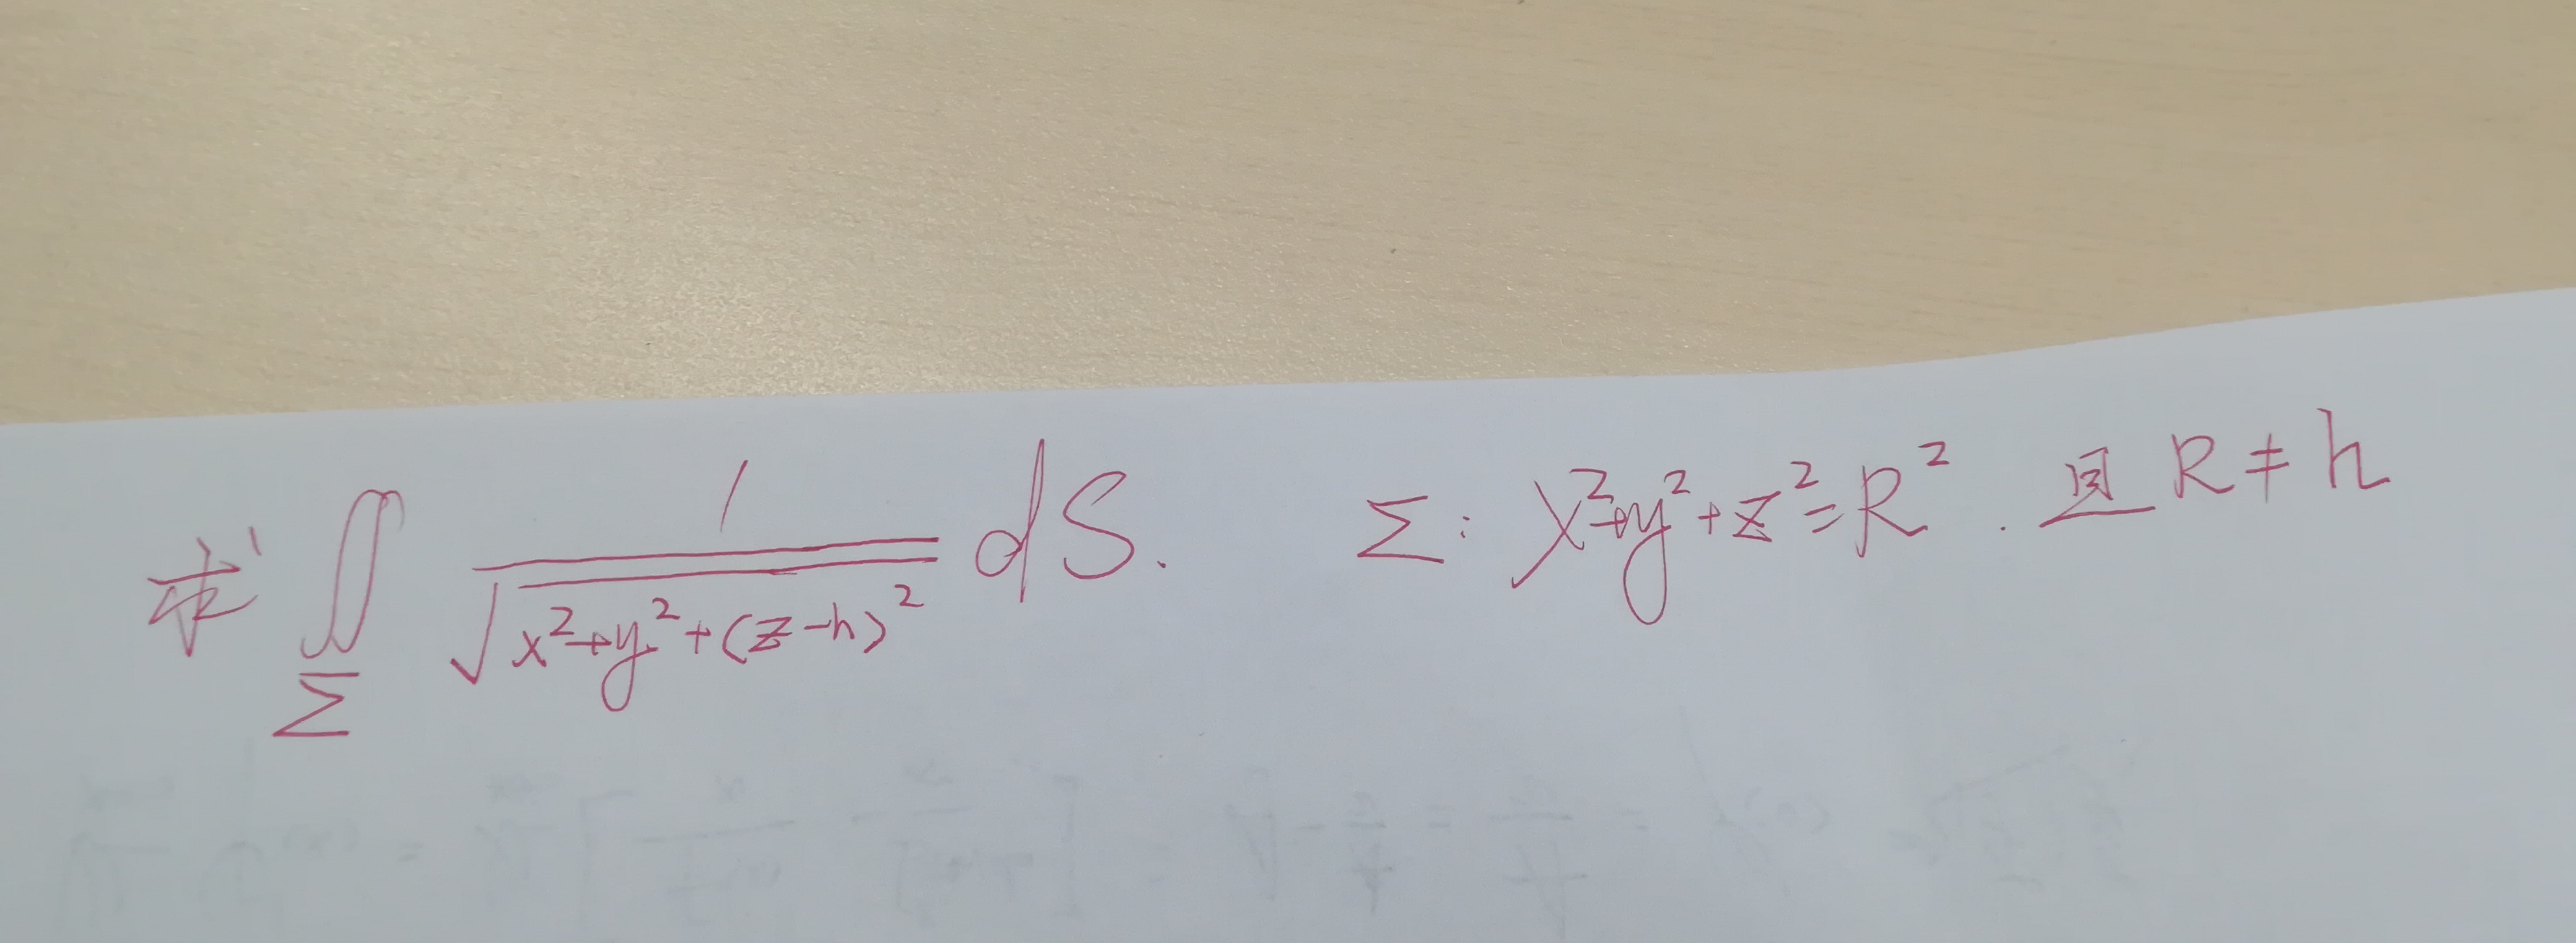 求 ∬_Σ 1/√(x²+y²+(z-h)²) dS. Σ: x²+y²+z²=R². 且 R≠h